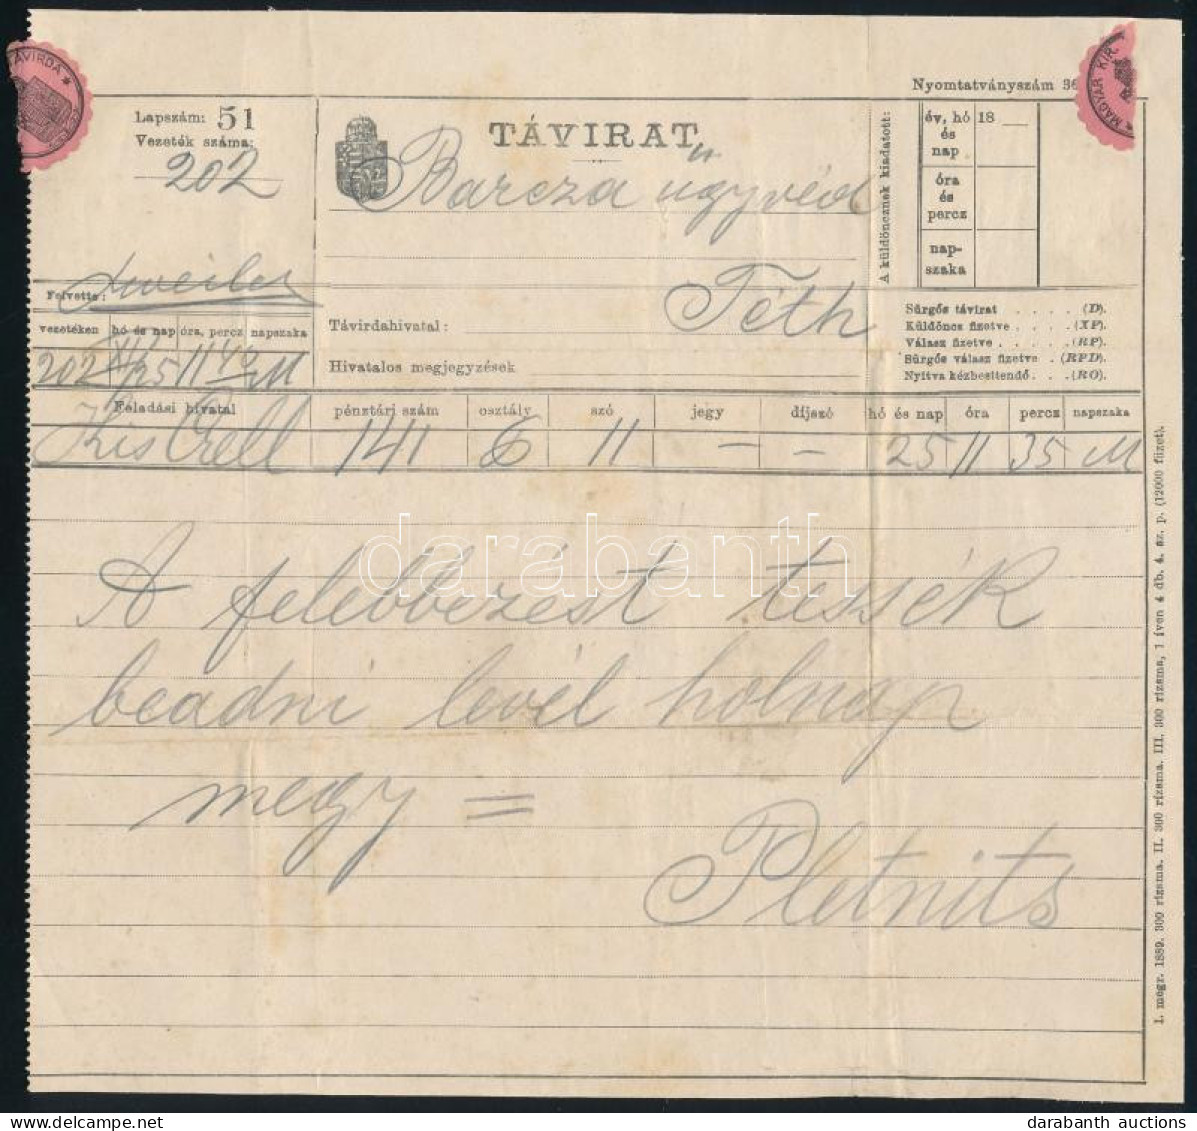 Nyomtatványszám 36
TÁVIRDA
MAGYAR KIR.
Lapszám: 51
Vezeték száma:
202
TÁVIRAT
Barcza ügyvéd
Téth
A küldöncznek kiadatott:
év, hó és nap 18
óra és percz
napszaka
Felvette:
vezetéken hó és nap óra, percz napszaka
202 25 11 40 M
Távirdahivatal:
Hivatalos megjegyzések
Sürgős távirat . . . . (D).
Küldöncz fizetve . . . . (XP)
Válasz fizetve . . . . . (RP)
Sürgős válasz fizetve . (RPD).
Nyitva kézbesítendő . . . (RO).
Feladási hivatal pénztári szám osztály szó jegy díjszó hó és nap óra percz napszaka
Kis Czell 1411 6 11 — — 25 11 35 M
A felebbezést tessék
beadni levél holnap
megy =
Pletnits
1. megr. 1889. 300 rizsma. II. 300 rizsma. III. 300 rizsma, 1 íven 4 db. 4. sz. p. (12000 füzet).
darabanth
darabanth auctions